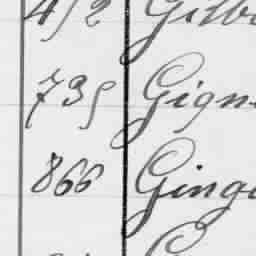 452 Gilb
735 Gign
866 Ging